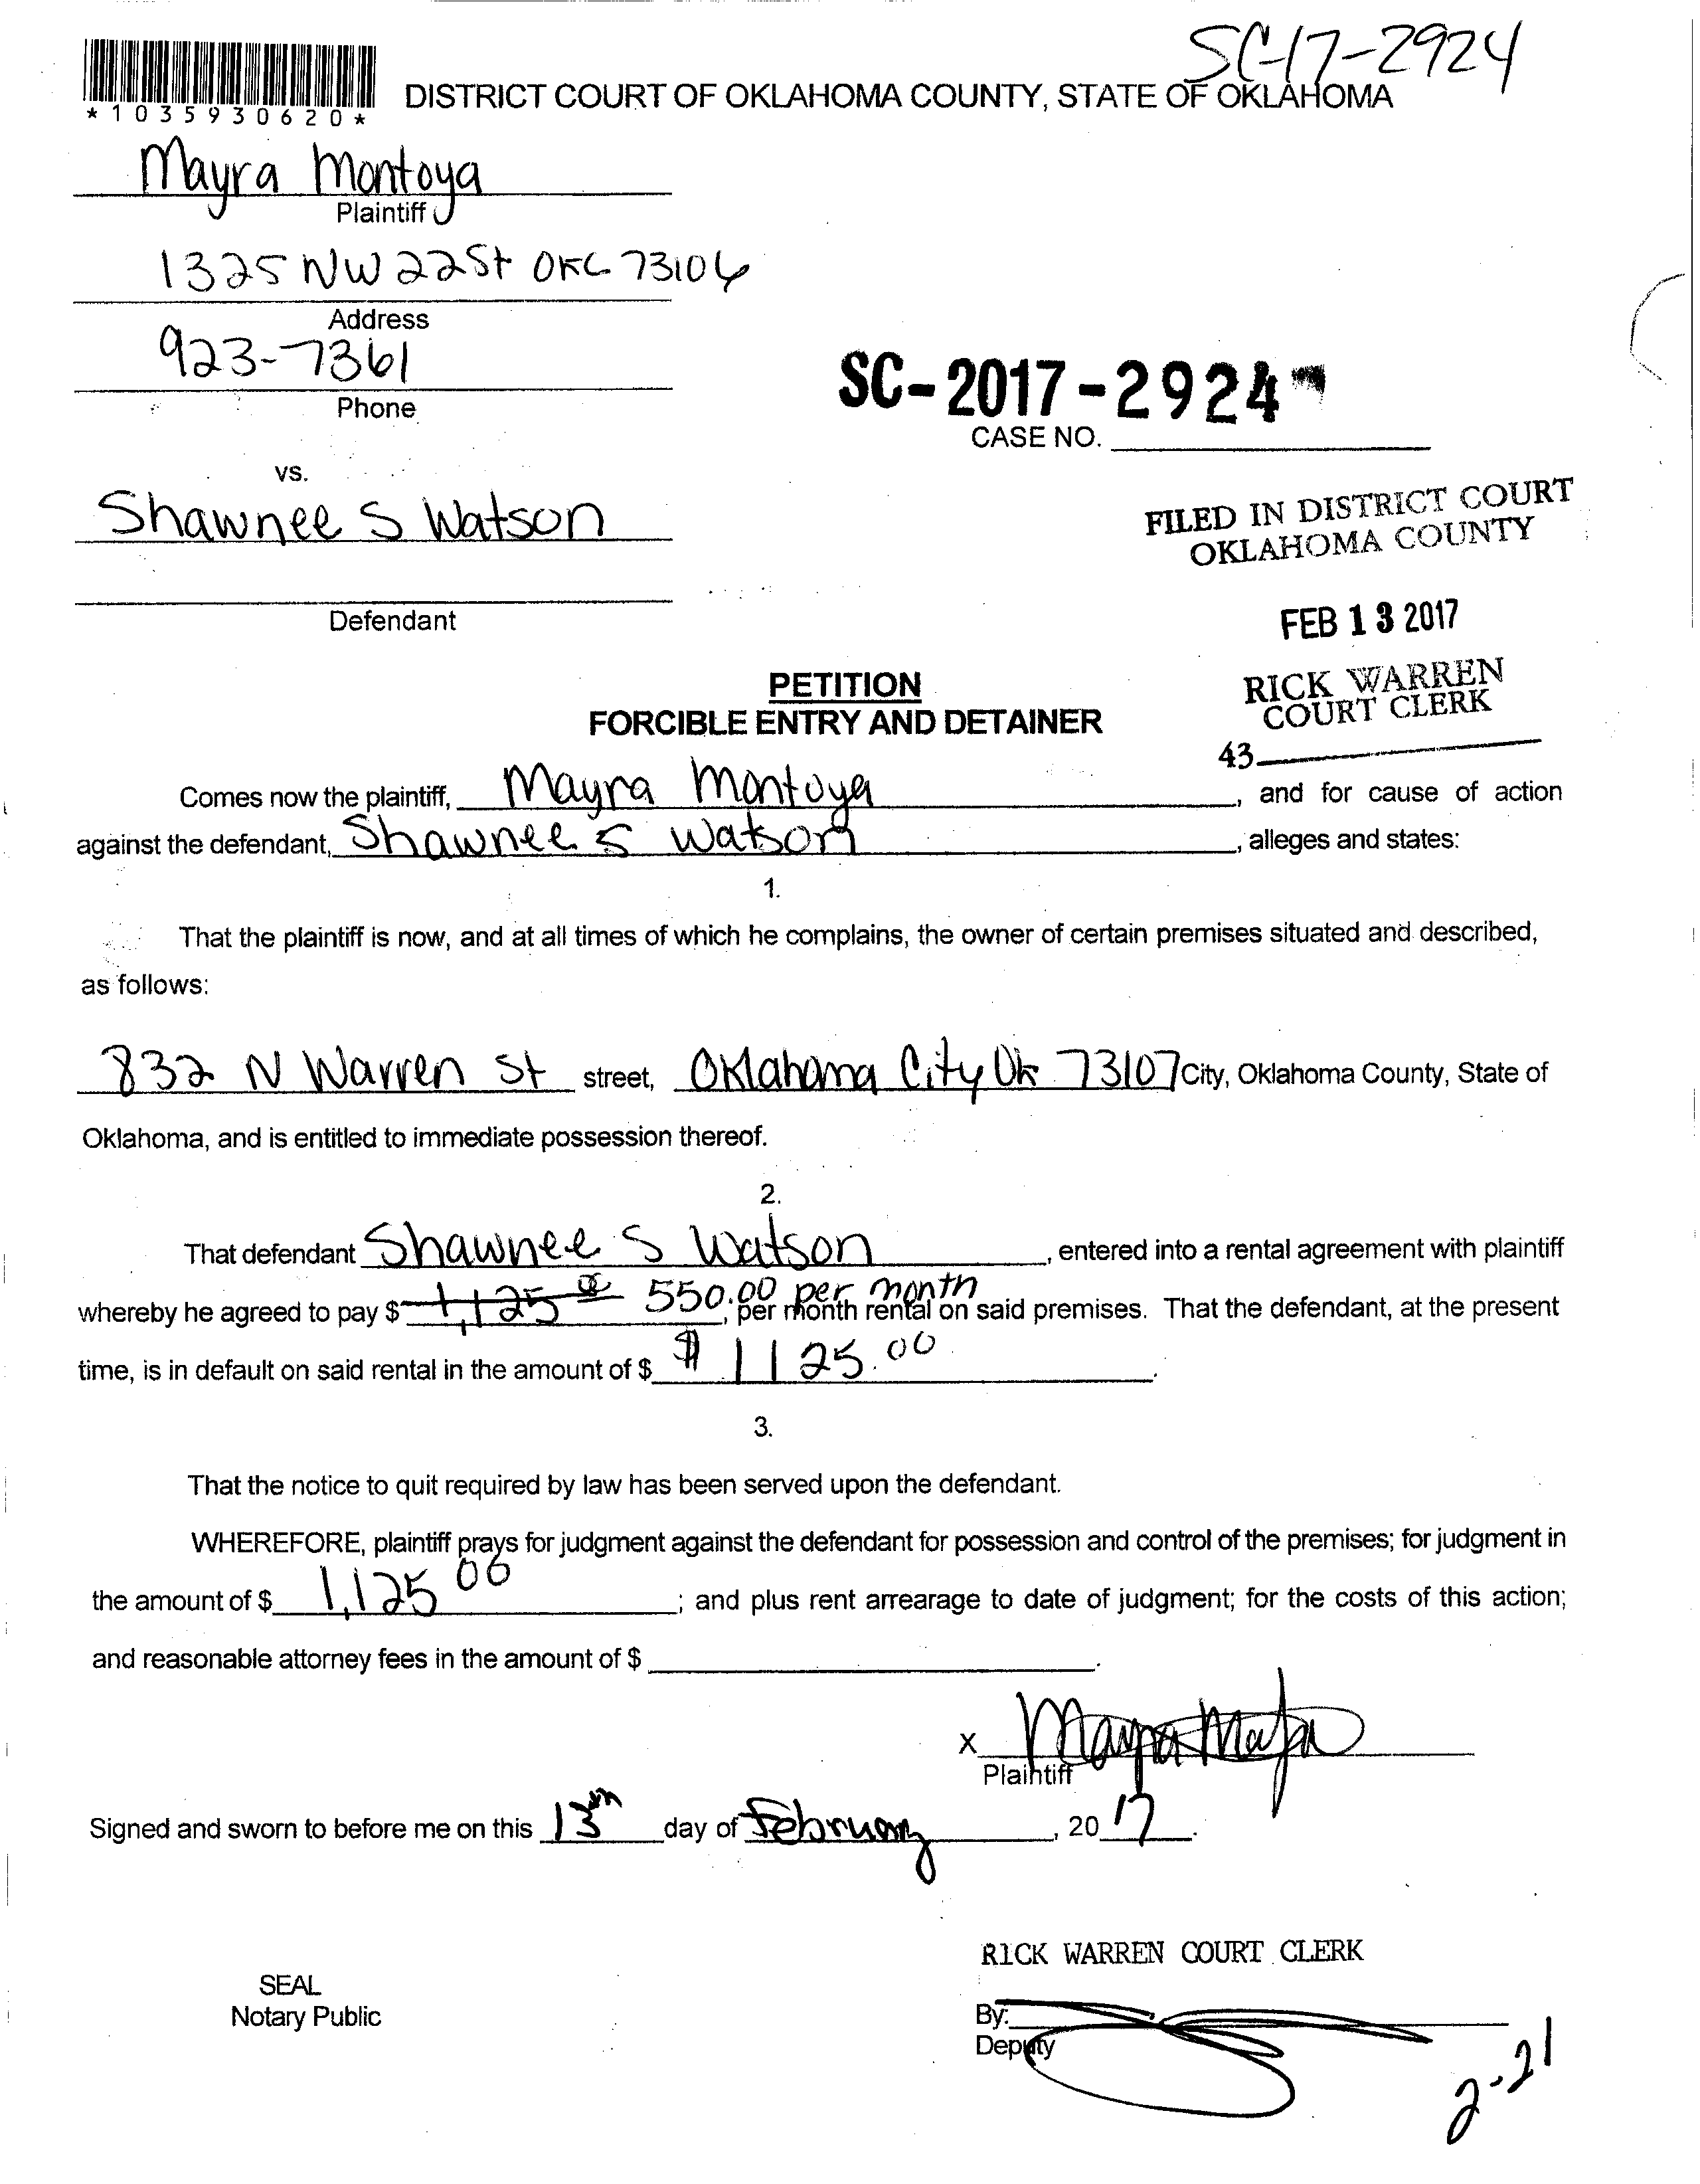 SC-17-2924
*1035930620*
DISTRICT COURT OF OKLAHOMA COUNTY, STATE OF OKLAHOMA
Mayra Montoya
Plaintiff
1325 NW 22St OKC 73106
Address
923-7361
Phone
SC-2017-2924
CASE NO.
vs.
Shawnee S Watson
Defendant
FILED IN DISTRICT COURT
OKLAHOMA COUNTY
FEB 13 2017
RICK WARREN
COURT CLERK
43
PETITION
FORCIBLE ENTRY AND DETAINER
Comes now the plaintiff, Mayra Montoya, and for cause of action
against the defendant, Shawnee S Watson, alleges and states:
1.
That the plaintiff is now, and at all times of which he complains, the owner of certain premises situated and described,
as follows:
832 N Warren St street, Oklahoma City Ok 73107 City, Oklahoma County, State of
Oklahoma, and is entitled to immediate possession thereof.
2.
That defendant Shawnee S Watson, entered into a rental agreement with plaintiff
whereby he agreed to pay $ 1,125 00 550.00 per month, per month rental on said premises. That the defendant, at the present
time, is in default on said rental in the amount of $ $ 1125.00.
3.
That the notice to quit required by law has been served upon the defendant.
WHEREFORE, plaintiff prays for judgment against the defendant for possession and control of the premises; for judgment in
the amount of $ 1,125 00; and plus rent arrearage to date of judgment; for the costs of this action;
and reasonable attorney fees in the amount of $ .
X
Plaintiff
Signed and sworn to before me on this 13th day of February, 20 17.
RICK WARREN COURT CLERK
SEAL
Notary Public
By:
Deputy
2-21